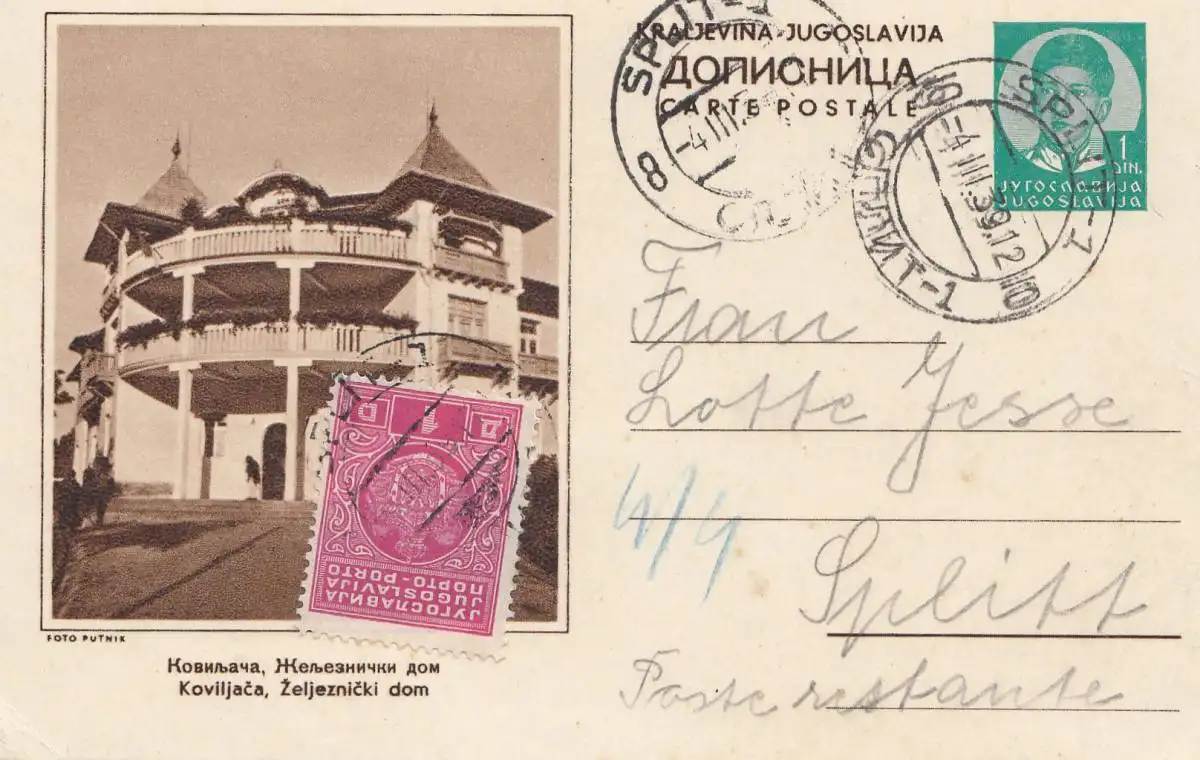 KRALJEVINA JUGOSLAVIJA
ДОПИСНИЦА
CARTE POSTALE
1
DIN.
ЈУГОСЛАВИЈА
JUGOSLAVIJA
8 SPLIT-1
-4 III
SPLIT-1
СПЛИТ-1
-4 III.39.12
Frau
Lotte Jesse
4/4
Splitt
Poste restante
D 1 Д
ЈУГОСЛАВИЈА
JUGOSLAVIJA
ПОРТО - PORTO
FOTO PUTNIK
Ковиљача, Жељезнички дом
Koviljača, Željeznički dom